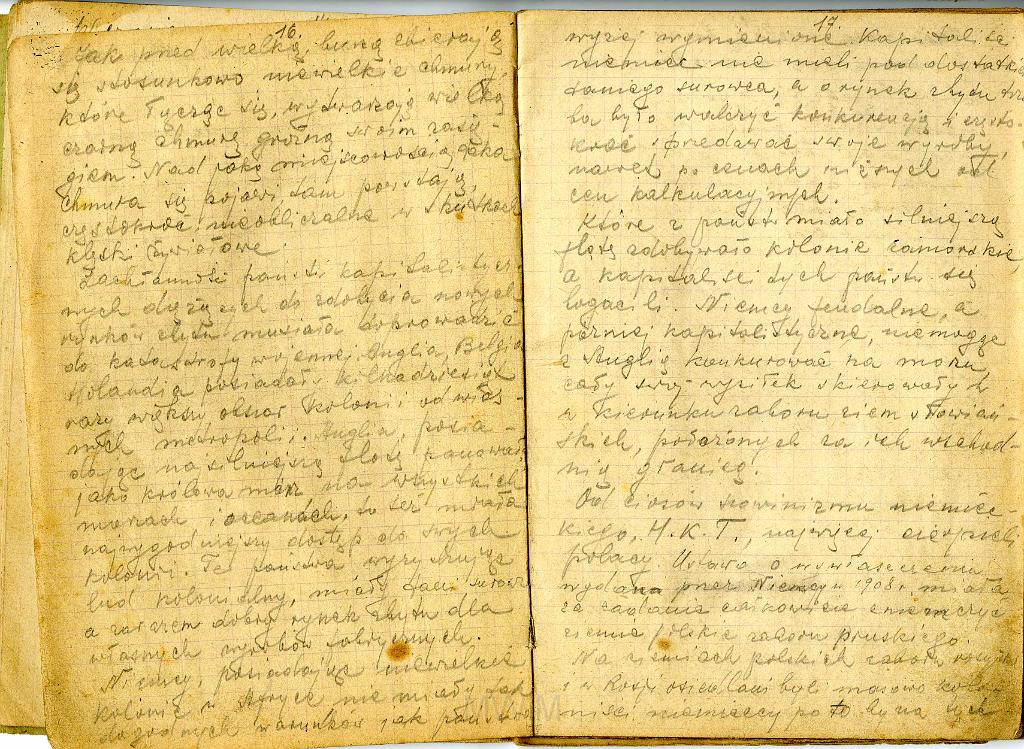 16
Jak pred wielką burzą zbierają
się stosunkowo niewielkie chmury,
które łącząc się, wytwarzają wielką
czarną chmurę groźną swoim zasię-
giem. Nad jaką miejscowością taka
chmura się pojawi, tam powstają,
częstokroć nieobliczalne w skutkach
klęski żywiołowe.
Zachłanność państw kapitalistycz-
nych dążących do zdobycia nowych
rynków zbytu musiała doprowadzić
do katastrofy wojennej. Anglia, Belgja
Holandia posiadały kilkadziesiąt
razy większy obszar kolonii od włas-
nych metropolii. Anglia, posia-
dając najsilniejszą flotę panowała
jako królowa mórz na wszystkich
morzach i oceanach, to też miała
najwygodniejszy dostęp do swych
kolonii. Te państwa wyzyskując
lud kolonialny, miały tani surowiec
a zarazem dobry rynek zbytu dla
własnych wyrobów fabrycznych.
Niemcy, posiadając niewielkie
kolonie w Afryce nie miały tak
dogodnych warunków jak państwa
17
wyżej wymienione. Kapitaliści
niemiec. nie mieli pod dostatkiem
taniego surowca, a o rynek zbytu trze
ba było walczyć konkurencją i często-
kroć sprzedawać swoje wyroby,
nawet po cenach niższych od
cen kalkulacyjnych.
Które z państw miało silniejszą
flotę zdobywało kolonie zamorskie,
a kapitaliści tych państw się
bogacili. Niemcy feudalne, a
później kapitalistyczne, niemogąc
z Anglią konkurować na morzu,
cały swój wysiłek skierowały
w kierunku zaboru ziem słowiań-
skich, położonych za ich wschod-
nią granicą.
Od ciosów szowinizmu niemiec-
kiego, H.K.T., najwięcej cierpieli
polacy. Ustawa o wywłaszczeniu
wydana przez Niemcy w 1908 r. miała
za zadanie całkowicie zniemczyć
ziemie polskie zaboru pruskiego.
Na ziemiach polskich zaboru rosyjs
i w Rosji osiedlani byli masowo kolo-
niści niemieccy po to by na tych